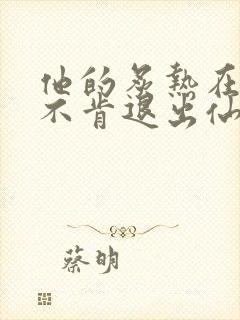 他的炙热在
不肯退出仙
蔡明